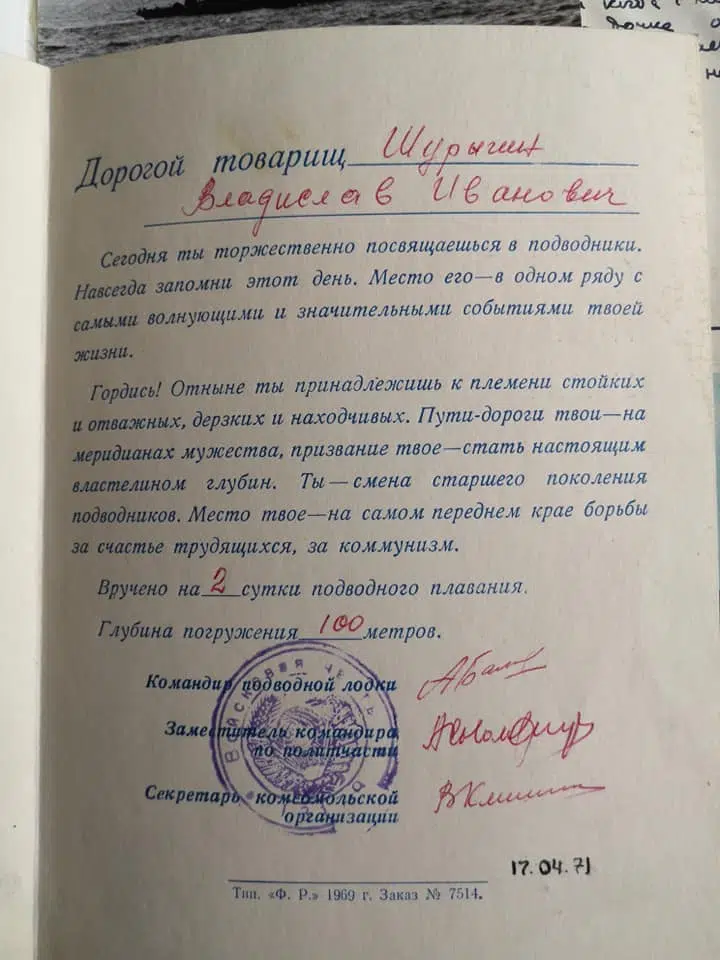 Дорогой товарищ Шурыгин
Владислав Иванович
Сегодня ты торжественно посвящаешься в подводники.
Навсегда запомни этот день. Место его—в одном ряду с
самыми волнующими и значительными событиями твоей
жизни.
Гордись! Отныне ты принадлежишь к племени стойких
и отважных, дерзких и находчивых. Пути-дороги твои—на
меридианах мужества, призвание твое—стать настоящим
властелином глубин. Ты—смена старшего поколения
подводников. Место твое—на самом переднем крае борьбы
за счастье трудящихся, за коммунизм.
Вручено на 2 сутки подводного плавания.
Глубина погружения 100 метров.
Командир подводной лодки
Заместитель командира
по политчасти
Секретарь комсомольской
организации
Войсковая часть
17.04.71
Тип. «Ф. Р.» 1969 г. Заказ № 7514.